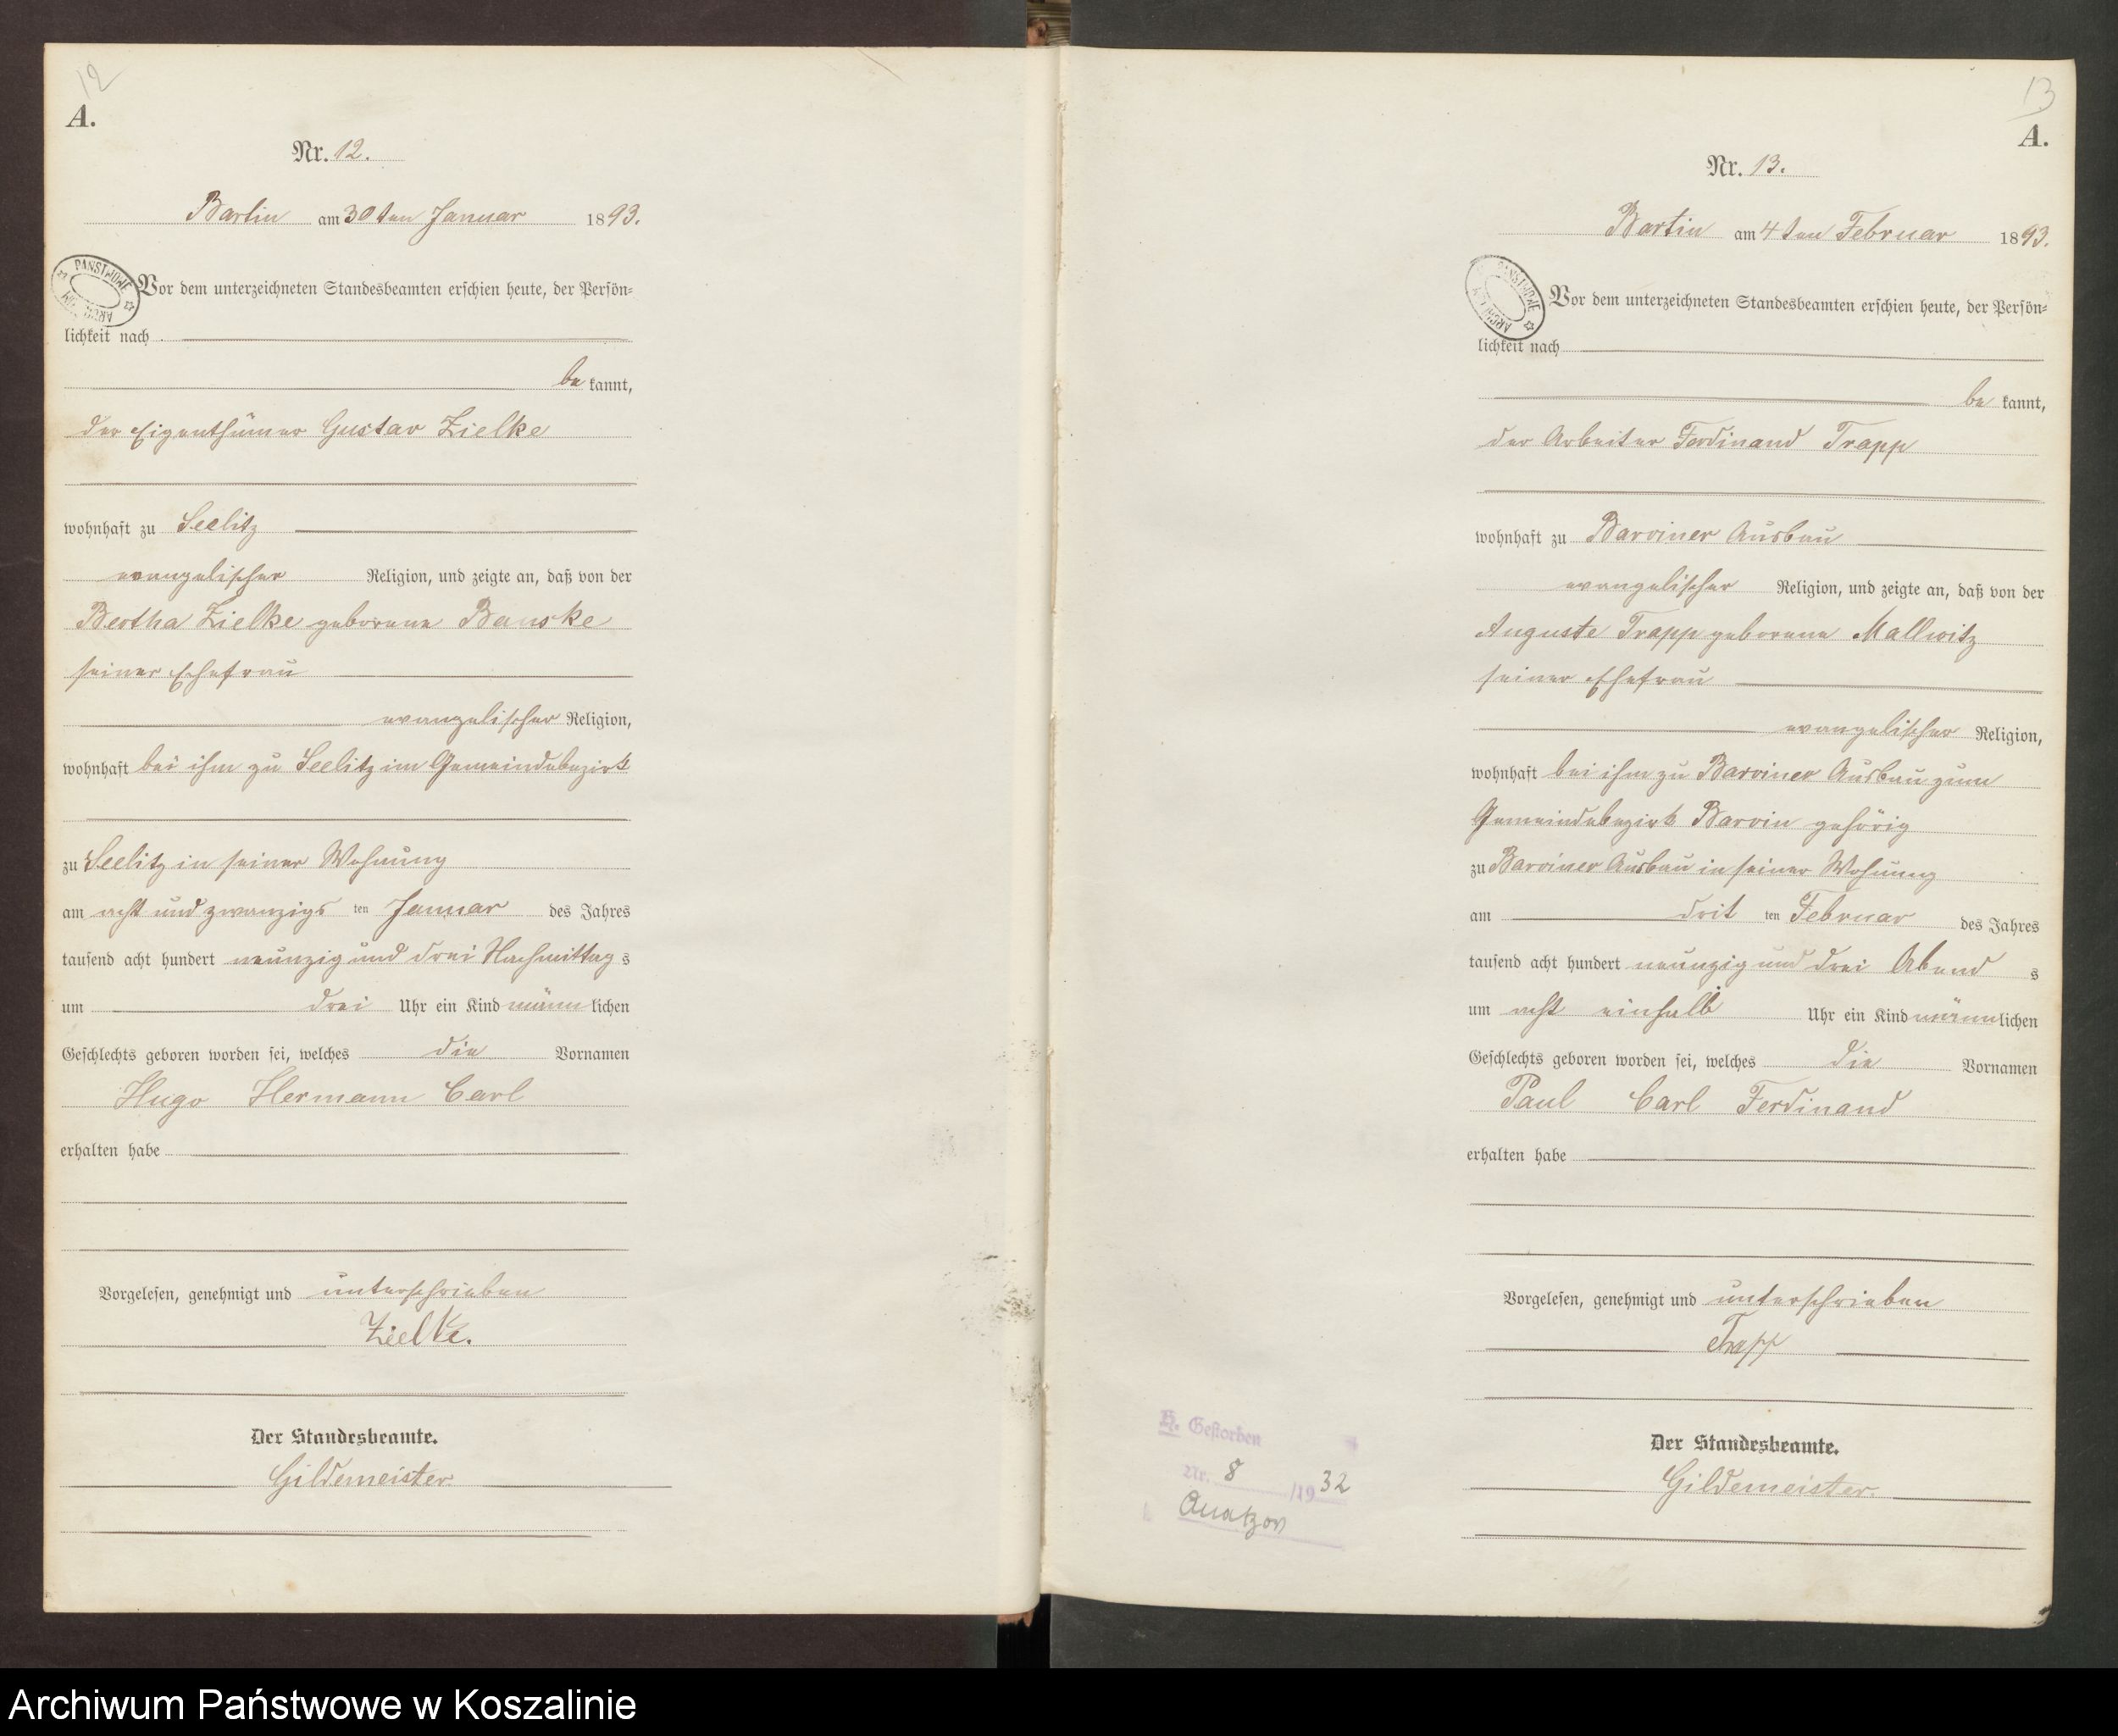 12
A.
Nr. 12.
Bartin am 30ten Januar 1893.
PAŃSTWOWE ARCHIWUM
Vor dem unterzeichneten Standesbeamten erschien heute, der Persön-
lichkeit nach
be kannt,
der Eigenthümer Gustav Zielke
wohnhaft zu Seelitz
evangelischer Religion, und zeigte an, daß von der
Bertha Zielke geborene Banske
seiner Ehefrau
evangelischer Religion,
wohnhaft bei ihm zu Seelitz im Gemeindebezirk
zu Seelitz in seiner Wohnung
am acht und zwanzigs ten Januar des Jahres
tausend acht hundert neunzig und drei Nachmittag s
um drei Uhr ein Kind männ lichen
Geschlechts geboren worden sei, welches die Vornamen
Hugo Hermann Carl
erhalten habe
Vorgelesen, genehmigt und unterschrieben
Zielke.
Der Standesbeamte.
Gildemeister.
13
A.
Nr. 13.
Bartin am 4ten Februar 1893.
PAŃSTWOWE ARCHIWUM
Vor dem unterzeichneten Standesbeamten erschien heute, der Persön-
lichkeit nach
be kannt,
der Arbeiter Ferdinand Trapp
wohnhaft zu Barviner Ausbau
evangelischer Religion, und zeigte an, daß von der
Auguste Trapp geborene Mallwitz
seiner Ehefrau
evangelischer Religion,
wohnhaft bei ihm zu Barviner Ausbau zum
Gemeindebezirk Barvin gehörig
zu Barviner Ausbau in seiner Wohnung
am drit ten Februar des Jahres
tausend acht hundert neunzig und drei Abend s
um acht einhalb Uhr ein Kind männ lichen
Geschlechts geboren worden sei, welches die Vornamen
Paul Carl Ferdinand
erhalten habe
Vorgelesen, genehmigt und unterschrieben
Trapp
Der Standesbeamte.
Gildemeister.
H. Gestorben
Nr. 8 /1932
Quatzow
Archiwum Państwowe w Koszalinie